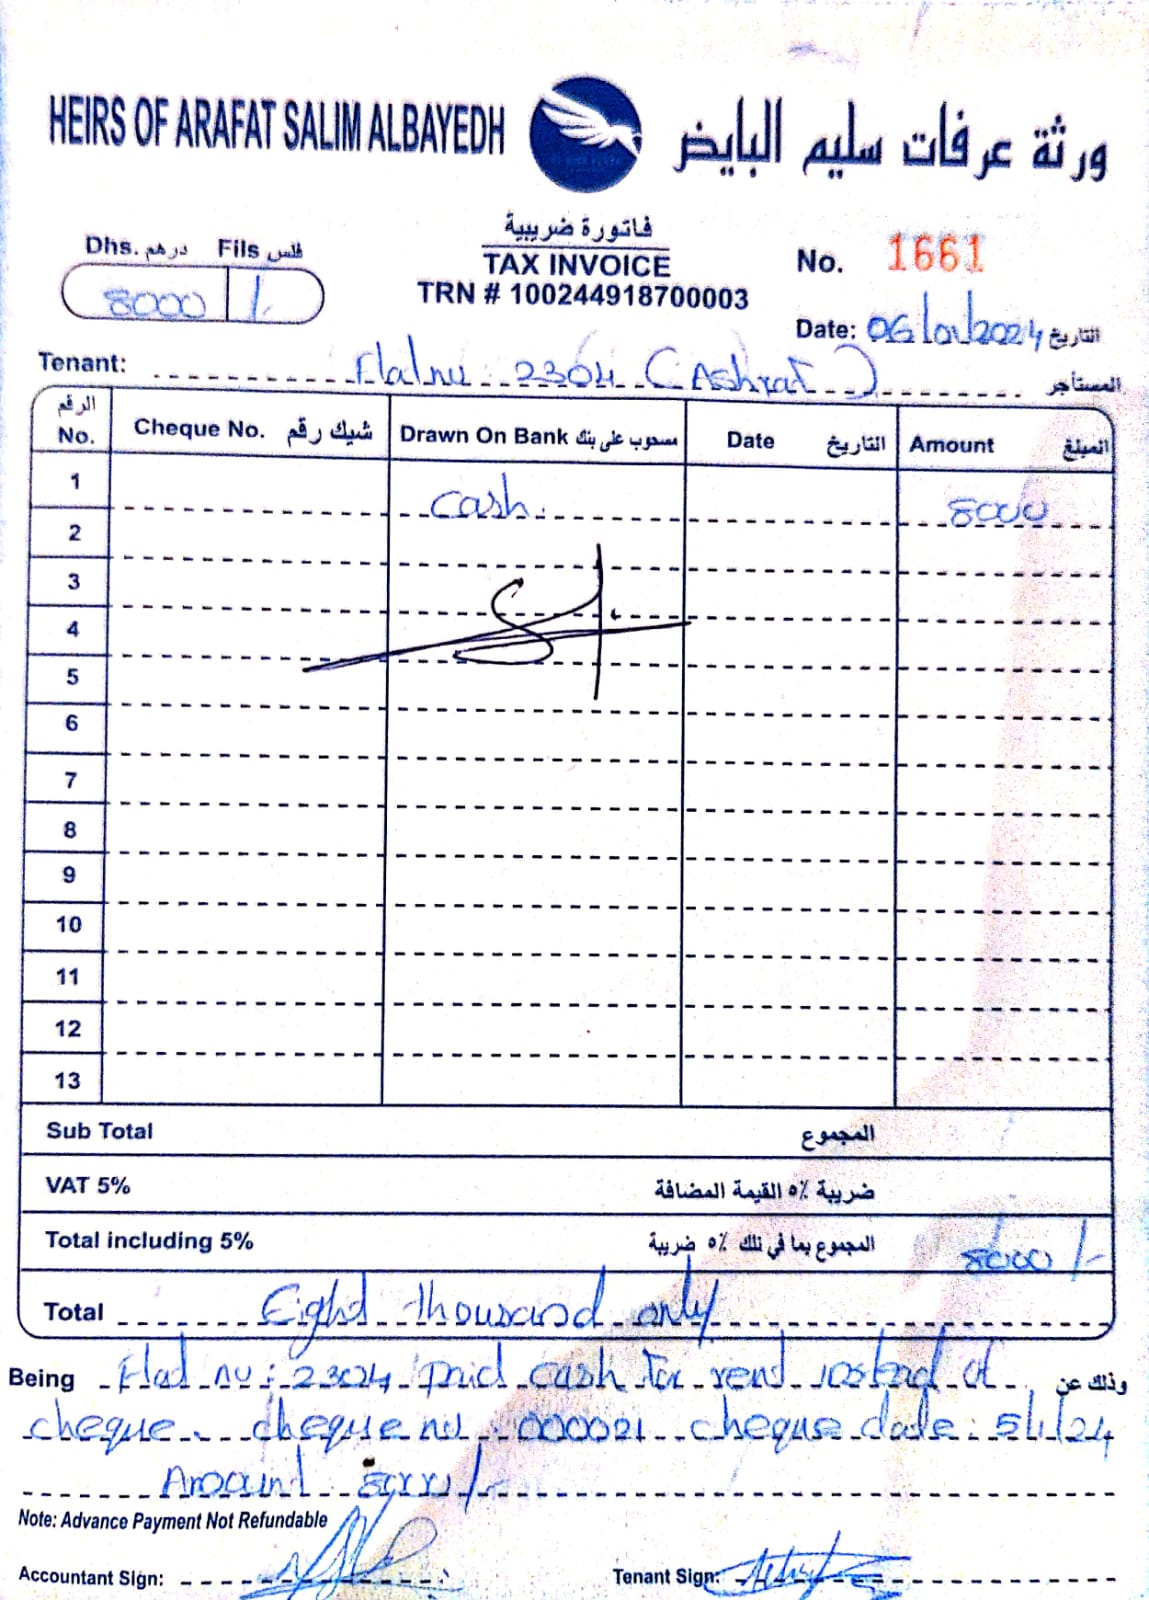 HEIRS OF ARAFAT SALIM ALBAYEDH
ورثة عرفات سليم البايض
فاتورة ضريبية
TAX INVOICE
TRN # 100244918700003
Dhs. درهم Fils فلس
8000 /-
No. 1661
Date: 06/01/2024 التاريخ
Tenant: Flat no: 2304 (Ashraf) المستأجر
الرقم No. Cheque No. شيك رقم Drawn On Bank مسحوب على بنك Date التاريخ Amount المبلغ
1 cash. 8000
2
3
4
5
6
7
8
9
10
11
12
13
Sub Total المجموع
VAT 5% ضريبة ٥٪ القيمة المضافة
Total including 5% المجموع بما في تلك ٥٪ ضريبة 8000/-
Total Eight thousand only
Being Flat no: 2304 paid cash for rent instead of وذلك عن
cheque. cheque no: 000021 cheque date: 5/1/24
Amount 8000/-
Note: Advance Payment Not Refundable
Accountant Sign:
Tenant Sign: